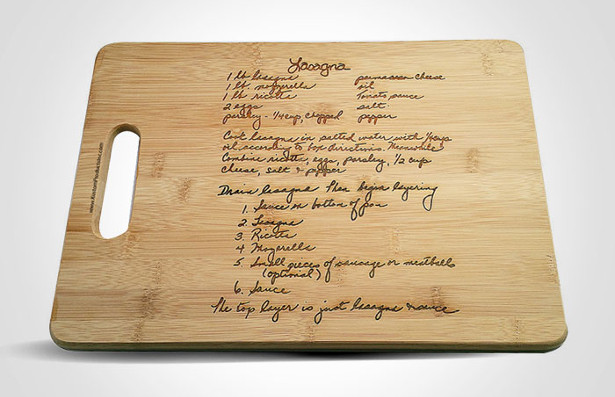 Lasagna
1 lb. lasagna parmasean cheese
1 lb. mozzerella oil
1 lb. ricotta Tomato sauce
2 eggs salt
parsley - 1/4 cup, chopped pepper
Cook lasagna in salted water with
oil, according to box directions. Meanwhile
Combine ricotta, eggs, parsley, 1/2 cup
cheese, salt & pepper
Drain lasagna Then begin layering
1. Sauce on bottom of pan
2. Lasagna
3. Ricotta
4. Mozerella
5. Small pieces of sausage or meatballs
(optional)
6. Sauce
The top layer is just lasagna & sauce